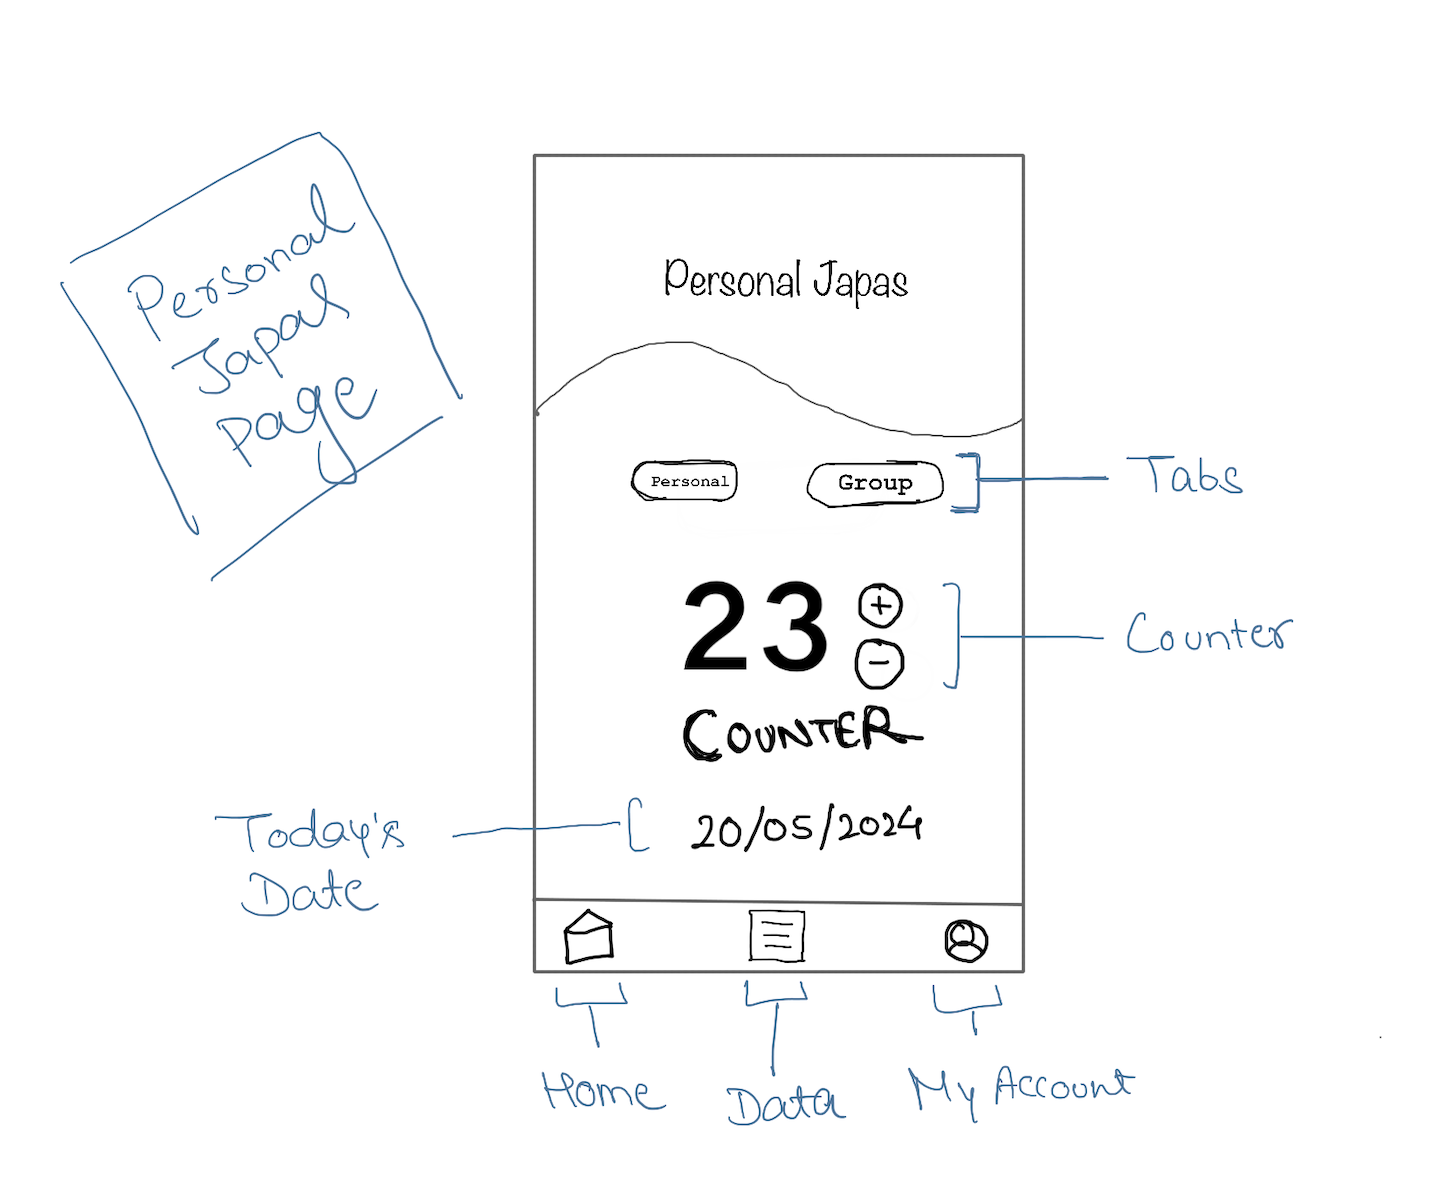 Personal
Japas
page
Personal Japas
Personal Group
Tabs
23 + -
Counter
COUNTER
Today's
Date
20/05/2024
Home
Data
My Account